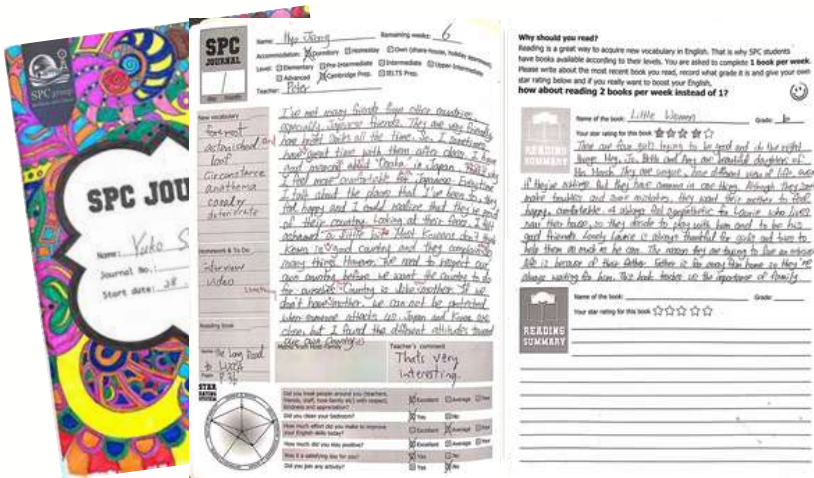 SPC group
SPC JOU
Name: Yuko S
Journal No.:
Start date: 28
SPC
JOURNAL
Name: Hyo Jeong Remaining weeks: 6
Accommodation: Dormitory Homestay Own (share house, holiday apartment,
Level: Elementary Pre-Intermediate Intermediate Upper-Intermediate
Advanced Cambridge Prep. IELTS Prep.
Teacher: Peter
New vocabulary
foremost
astonished
loaf
circumstance
anathema
deteriorate
Homework & To Do
interview
video
Reading book
Name: The Long Road
to LUCCA
Pages: P.36
I've met many friends from other countries
especially Japanese friends. They are very friendly
all the time. So, I sometimes
have great time with them after class. I have
good memories about "Osaka" in Japan. That's why
I feel more comfortable for Japanese. Everytime
I talk about the places that I've been to, they
feel happy and I could realize that they're proud
of their country. Looking at their face, I felt
ashamed a little bit. Most Koreans don't think
Korea is good country and they complain
many things. However, we need to respect our
own country before we want the country to do
for ourselves. Country is like mother. If we
don't have mother, we can not be protected
when someone attacks us. Japan and Korea are
close, but I found the different attitudes toward
our own country.
Memo from Host Family
Teacher's comment
Thats very
interesting.
STAR
RATING
SYSTEM
Did you treat people around you (teachers,
friends, staff, host family etc) with respect,
kindness and appreciation? Excellent Average Poor
Did you clean your bedroom? Yes No
How much effort did you make to improve
your English skills today? Excellent Average Poor
How much did you stay positive? Excellent Average Poor
Was it a satisfying day for you? Yes No
Did you join any activity? Yes No
Why should you read?
Reading is a great way to acquire new vocabulary in English. That is why SPC students
have books available according to their levels. You are asked to complete 1 book per week.
Please write about the most recent book you read, record what grade it is and give your own
star rating below and if you really want to boost your English,
how about reading 2 books per week instead of 1?
READING
SUMMARY
Name of the book: Little Women Grade: 6
Your star rating for this book
There are four girls trying to be good and do the right
things. Meg, Jo, Beth and Amy are beautiful daughters of
Mrs. March. They are unique, have different way of life even
if they're siblings but they have common in one thing. Although they some
make troubles and some mistakes, they want their mother to feel
happy, comfortable. I always feel sympathetic for Laurie who lives
near their house, so they decide to play with him and to be his
good friends. Lonely Laurie is always thankful for girls and tries to
help them as much as he can. The reason they are trying to live an
life is because of their father. Father is far away from home so they're
always waiting for him. This book teaches us the importance of family
READING
SUMMARY
Name of the book: Grade:
Your star rating for this book